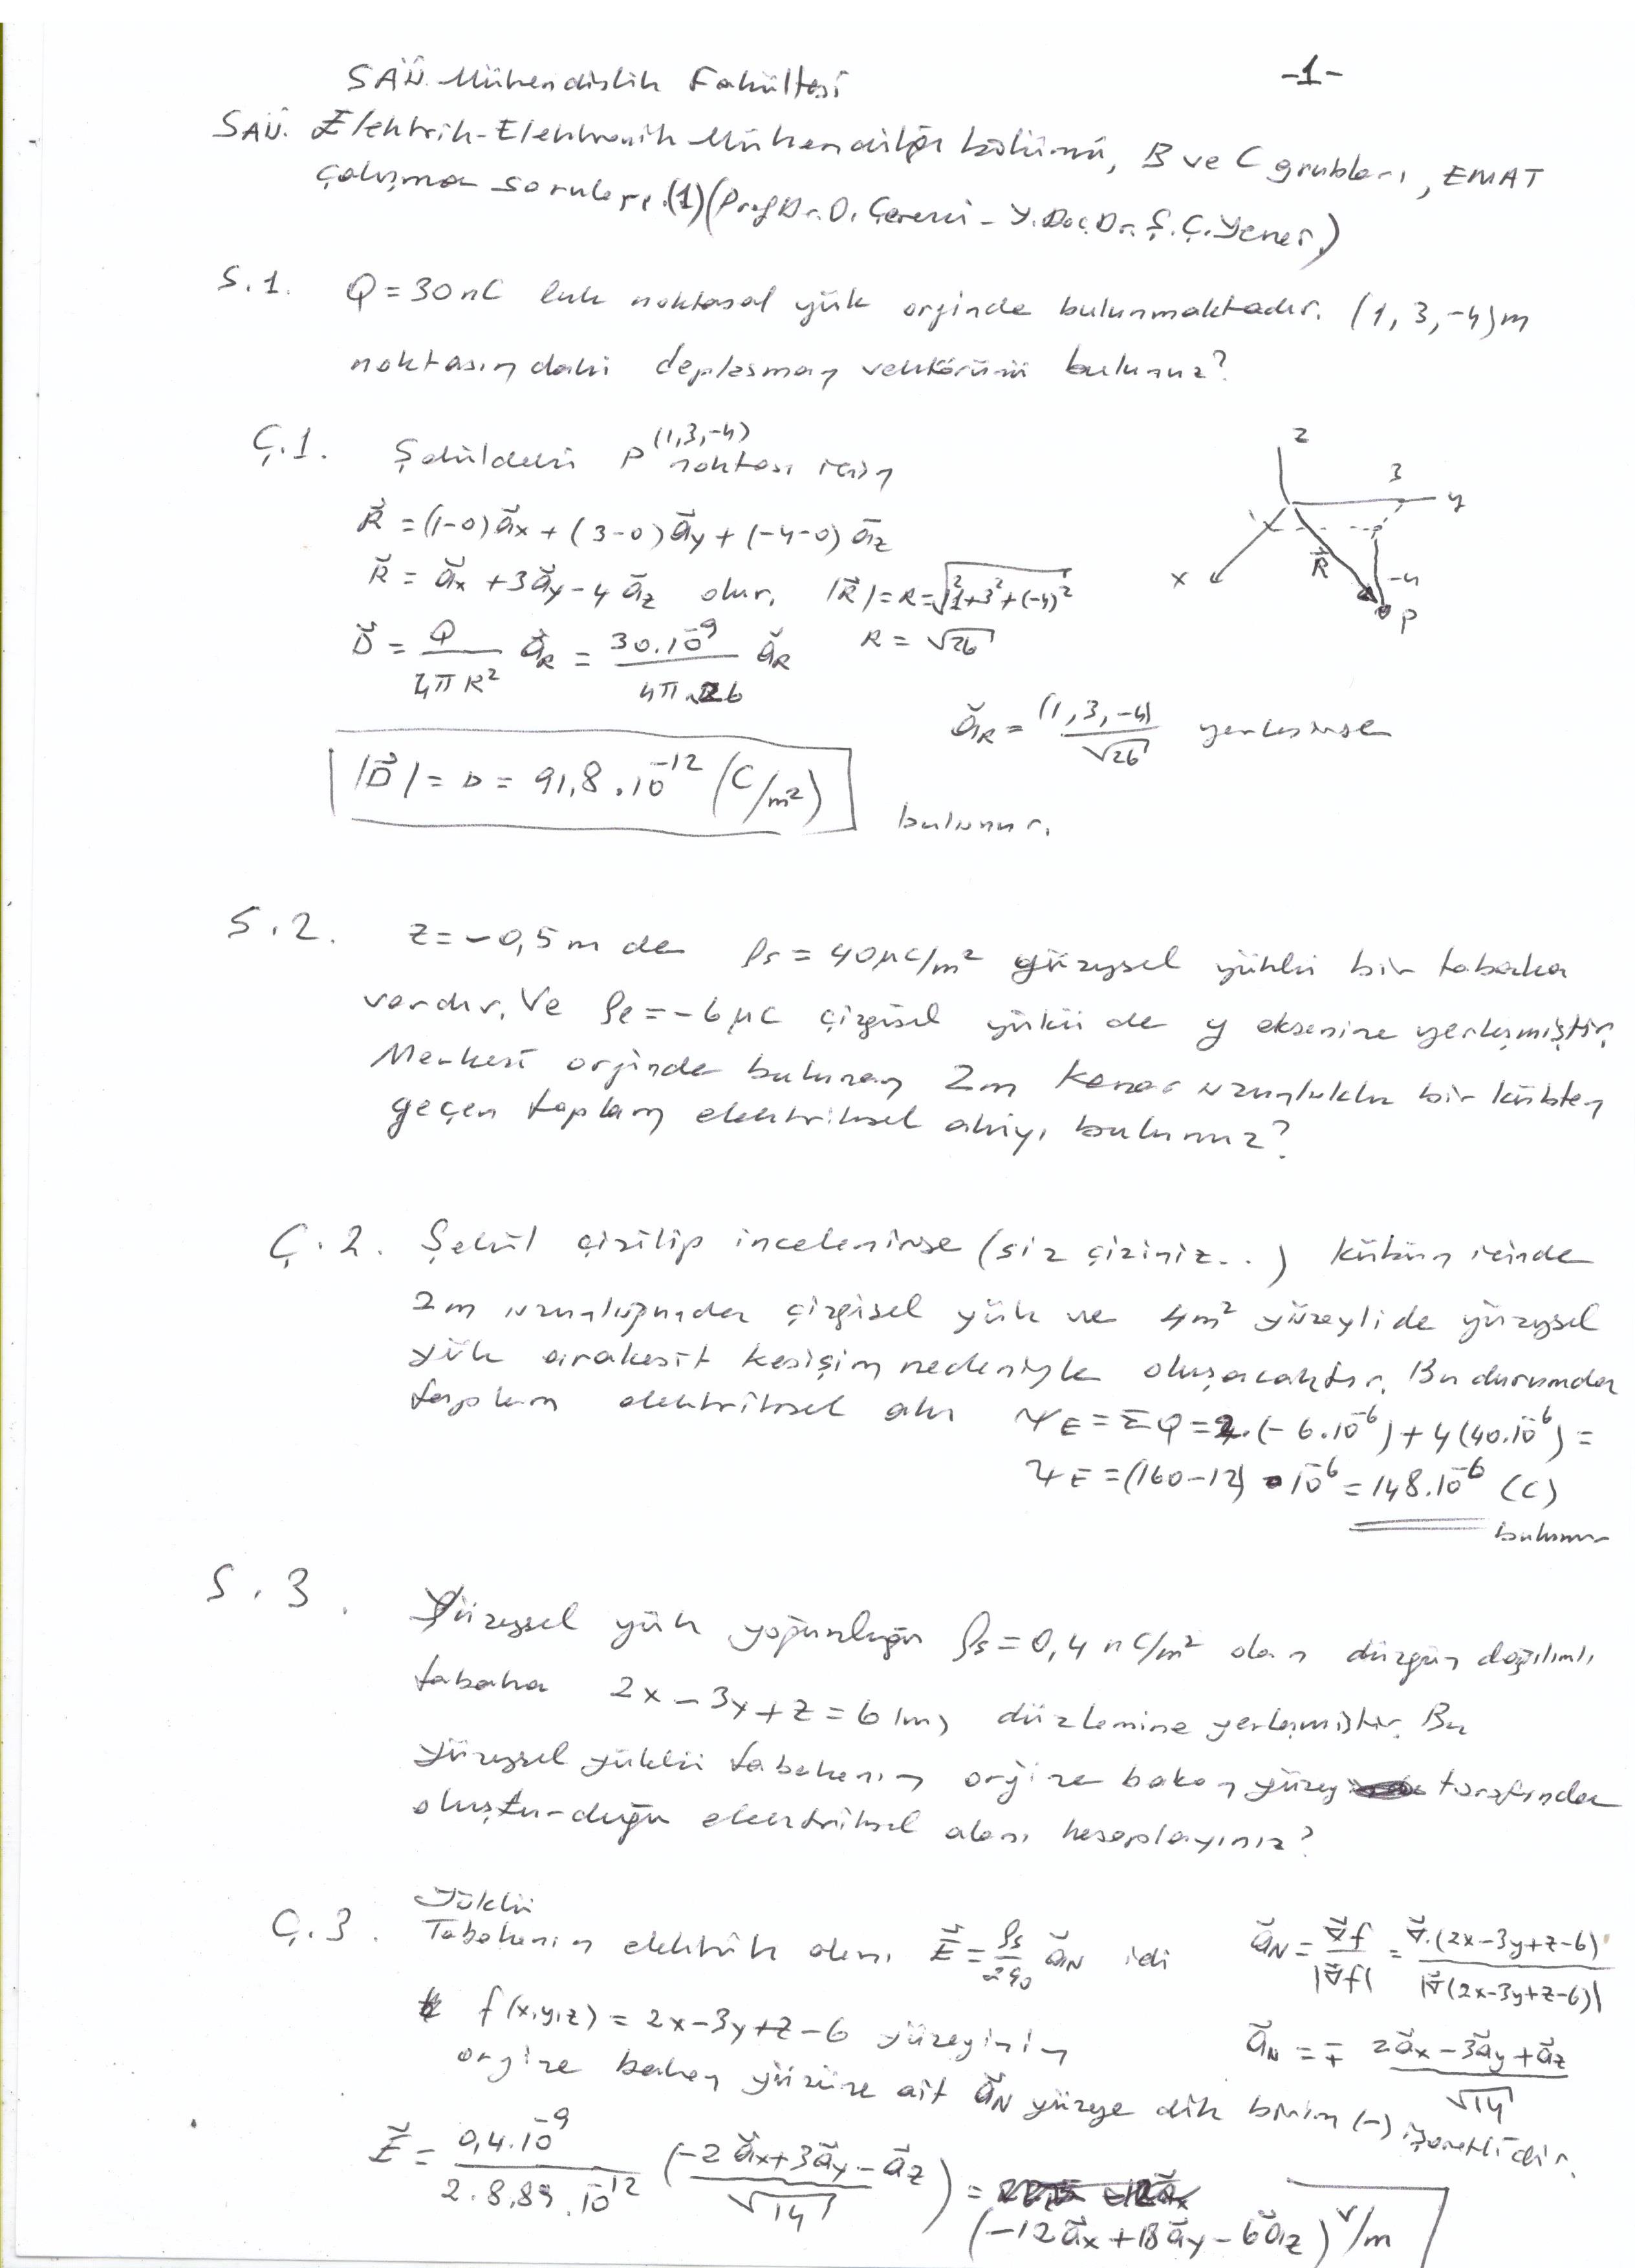 -1-
SAÜ. Mühendislik Fakültesi
SAÜ. Elektrik-Elektronik Mühendisliği bölümü, B ve C grubları, EMAT
çalışma soruları.(1)(Prof.Dr.O. Çerezci - Y.Doç.Dr. Ş.Ç.Yener)
S.1. Q = 30nC luk noktasal yük orjinde bulunmaktadır. (1, 3, -4)m
noktasındaki deplasman vektörünü bulunuz?
Ç.1. Şekildeki P(1,3,-4) noktası için
R⃗ = (1-0)a⃗x + (3-0)a⃗y + (-4-0)a⃗z
R⃗ = a⃗x + 3a⃗y - 4a⃗z olur. |R⃗| = R = √(1²+3²+(-4)²)
D⃗ = Q/(4πR²) a⃗R = 30.10⁻⁹/(4π.26) a⃗R R = √26
a⃗R = (1,3,-4)/√26 yerleşirse
|D⃗| = D = 91,8.10⁻¹² (C/m²) bulunur.
z
3
y
x
R⃗
-4
P
S.2. z = -0,5m de ρs = 40μC/m² yüzeysel yüklü bir tabaka
vardır. Ve ρℓ = -6μC çizgisel yükü de y eksenine yerleşmiştir.
Merkezi orjinde bulunan 2m kenar uzunluklu bir kübten
geçen toplam elektriksel akıyı bulunuz?
Ç.2. Şekil çizilip incelenirse (siz çiziniz..) kübün içinde
2m uzunluğunda çizgisel yük ve 4m² yüzeyli de yüzeysel
yük arakesit kesişim nedeniyle oluşacaktır. Bu durumda
toplam elektriksel akı ΨE = ΣQ = 2.(-6.10⁻⁶) + 4(40.10⁻⁶) =
ΨE = (160-12).10⁻⁶ = 148.10⁻⁶ (C)
bulunur
S.3. Yüzeysel yük yoğunluğu ρs = 0,4 nC/m² olan düzgün dağılımlı
tabaka 2x - 3y + z = 6 (m) düzlemine yerleşmiştir. Bu
yüzeysel yüklü tabakanın orjine bakan yüzey tarafından
oluşturduğu elektriksel alanı hesaplayınız?
Ç.3. Yüklü
Tabakanın elektrik alanı E⃗ = ρs/(2ε₀) a⃗N idi a⃗N = ∇⃗f/|∇⃗f| = ∇⃗.(2x-3y+z-6)/|∇⃗(2x-3y+z-6)|
f(x,y,z) = 2x-3y+z-6 yüzeyinin a⃗N = ∓ (2a⃗x - 3a⃗y + a⃗z)/√14
orjine bakan yüzüne ait a⃗N yüzeye dik birim (-) işaretlidir.
E⃗ = 0,4.10⁻⁹/(2.8,89.10⁻¹²) ((-2a⃗x+3a⃗y-a⃗z)/√14) =
(-12a⃗x + 18a⃗y - 6a⃗z) V/m